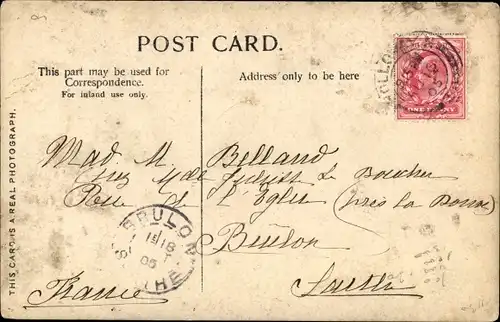 POST CARD.
This part may be used for
Correspondence.
For inland use only.
Address only to be here
ONE PENNY
THIS CARD IS A REAL PHOTOGRAPH.
Mad. M. Belland
chez Melle Juliette Le Boucher
Rue de l'Eglise (près la Poste)
Brulon
Sarthe
France
BRULON
18
05